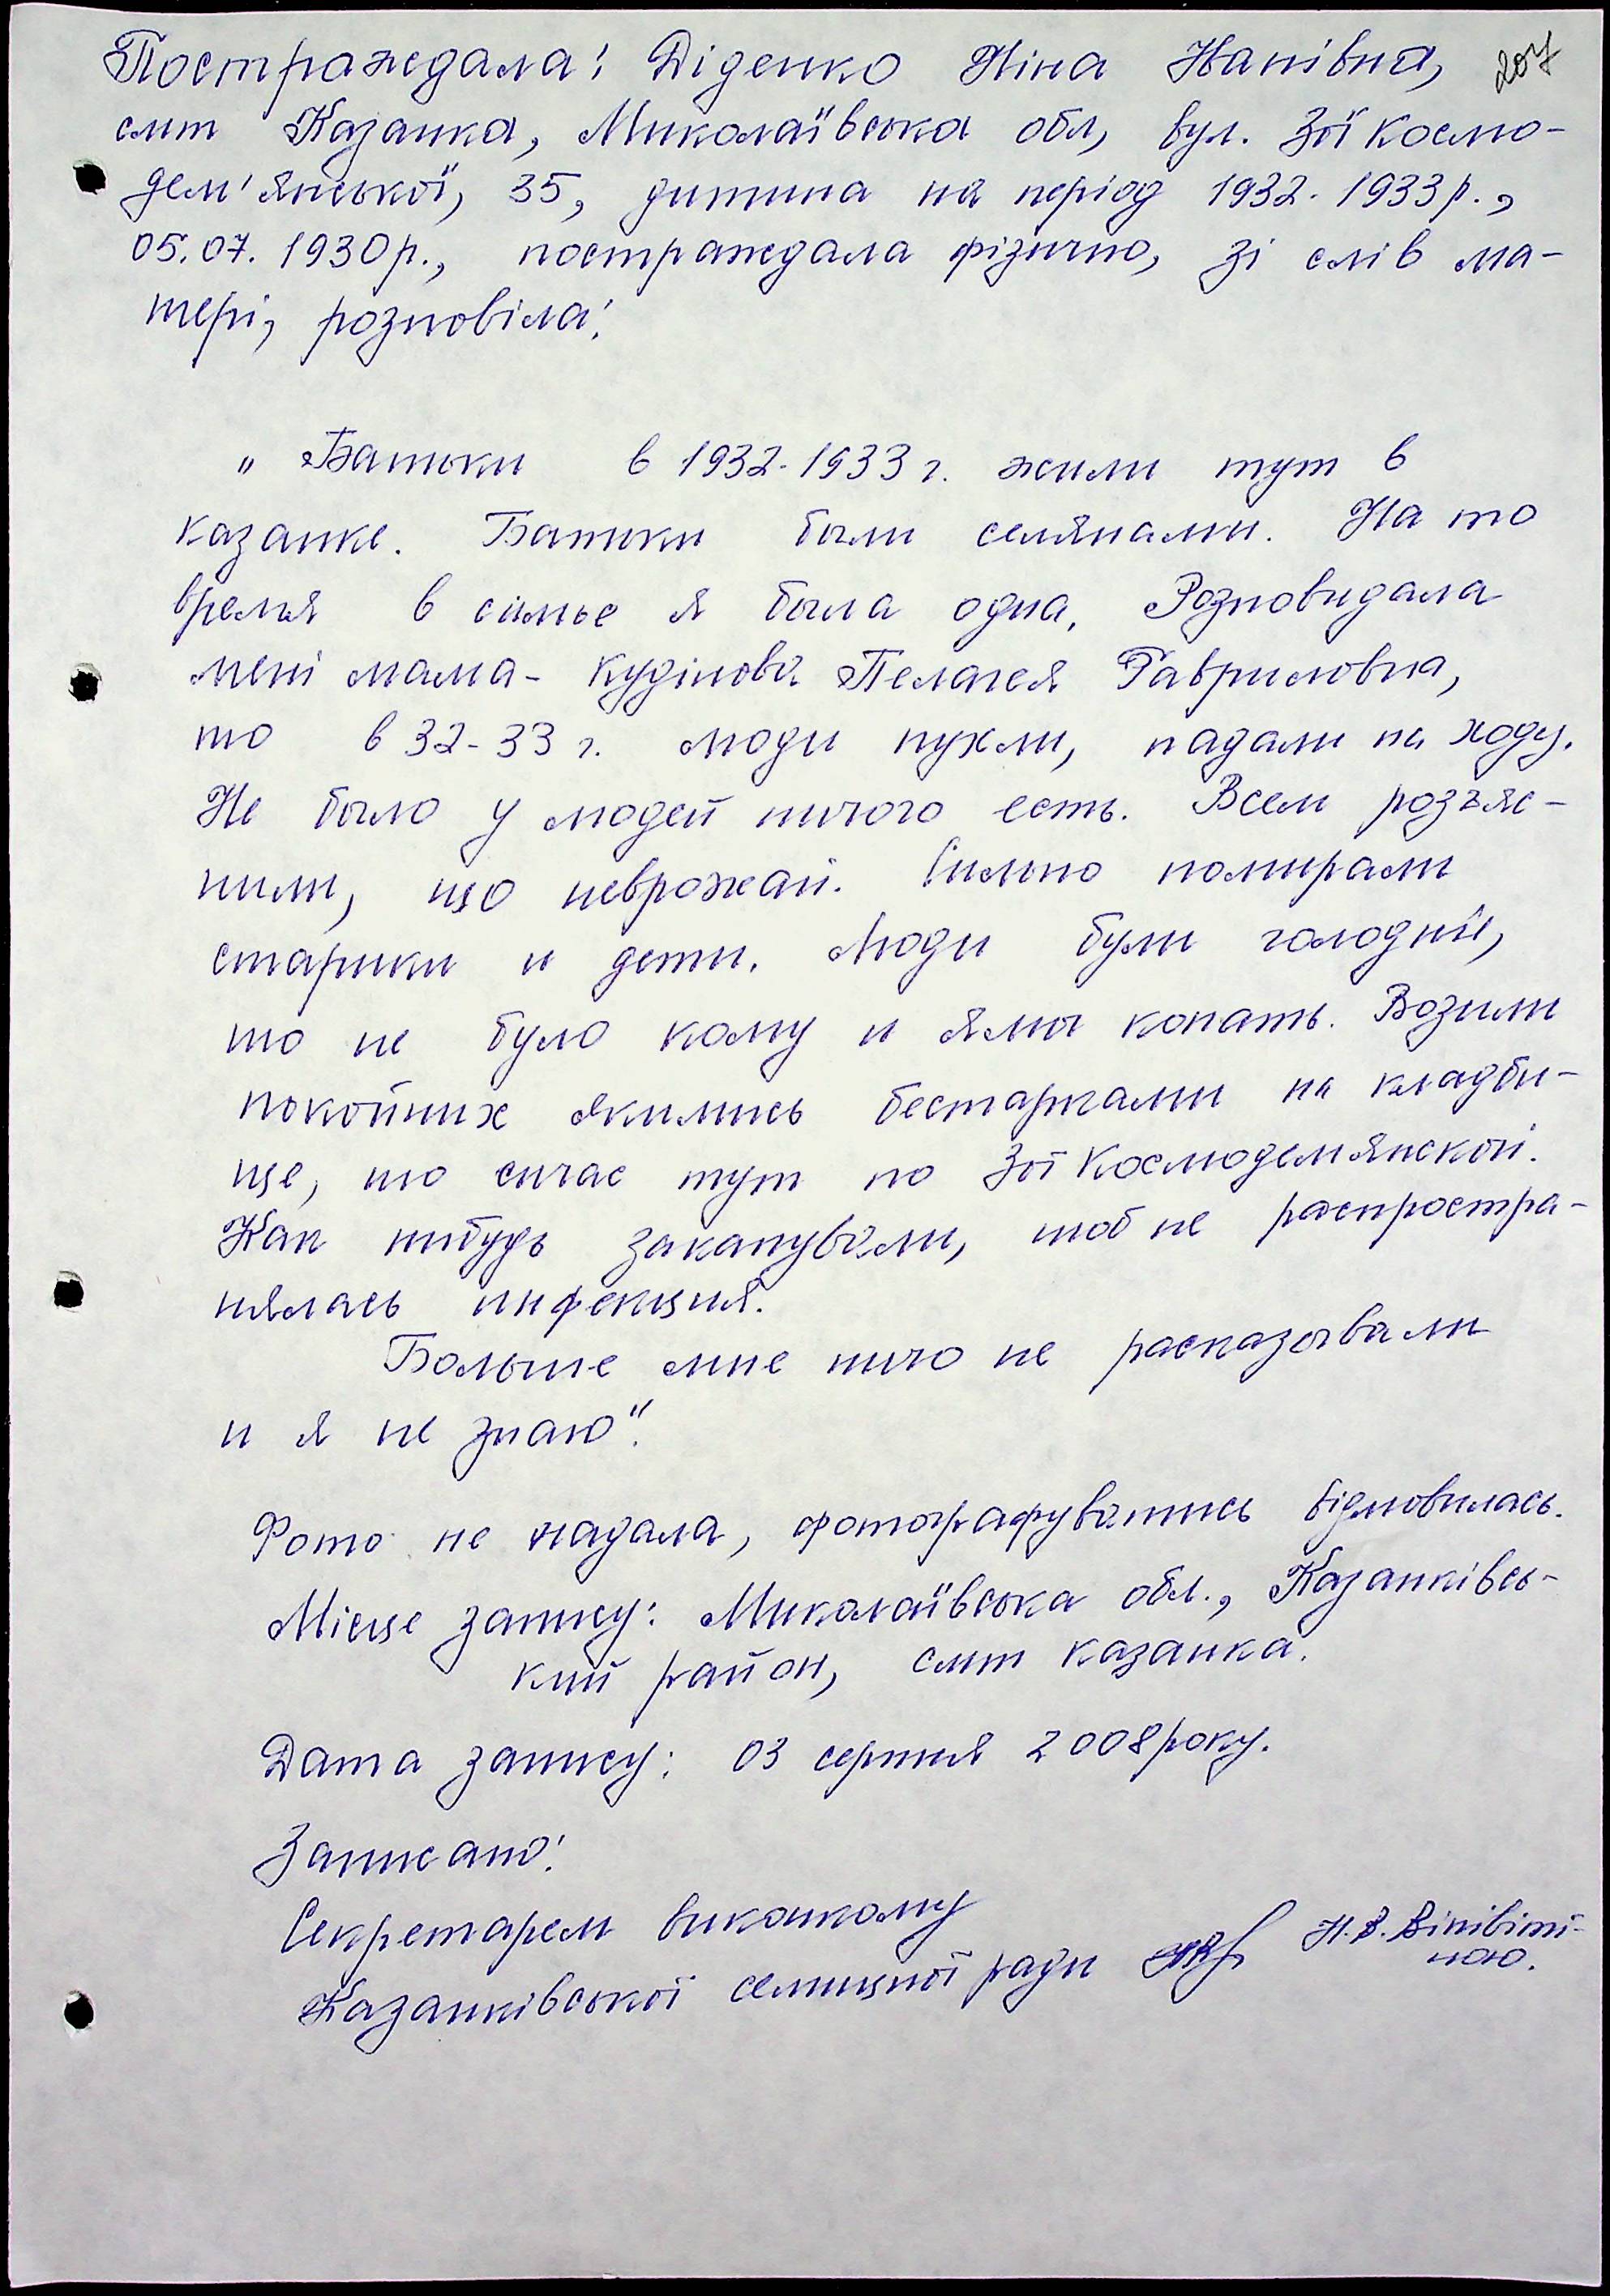 Постраждала: Діденко Ніна Іванівна, 204
смт Казанка, Миколаївська обл, вул. Зої Космо-
дем'янської, 35, дитина на період 1932-1933р.,
05.07.1930р., постраждала фізично, зі слів ма-
тері, розповіла:
„Батьки в 1932-1933 г. жили тут в
Казанке. Батьки были селянами. На то
время в сімье я была одна. Розповидала
мені мама - Кудінова Пелагея Гавриловна,
шо в 32-33 г. люди пухли, падали на ходу.
Не было у людей ничого есть. Всем розъяс-
нили, що неврожай. Сильно помирали
старики и дети. Люди були голодние,
шо не було кому и ямы копать. Возили
покойних якимись бестарками на кладби-
ще, шо сичас тут по Зої Космодемянской.
Как нибудь закапували, шоб не распростра-
нялась инфекция.
Больше мне ничо не расказывали
и я не знаю".
Фото не надала, фотографуватись відмовилась.
Місце запису: Миколаївська обл., Казанківсь-
кий район, смт Казанка.
Дата запису: 03 серпня 2008року.
Записано:
Секретарем виконкому
Казанківської селищної ради Н.В.